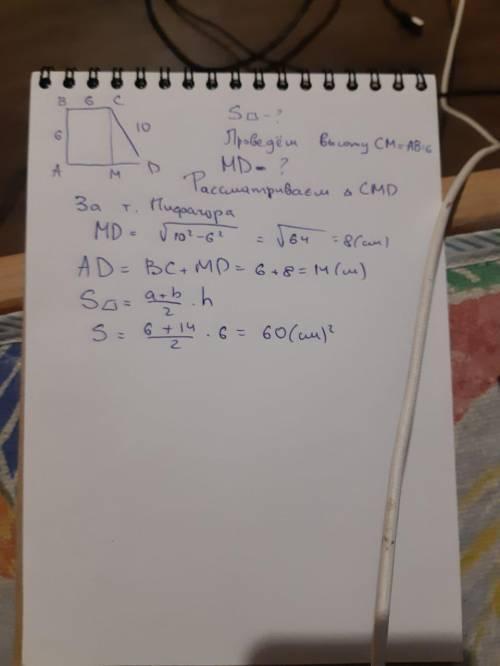 B 6 C
S⊿ - ?
6 10
Проведём высоту CM = AB = 6
A M D
MD = ?
Рассматриваем Δ CMD
За т. Пифагора
MD = √10² - 6² = √64 = 8 (см)
AD = BC + MD = 6 + 8 = 14 (см)
S⊿ = a+b/2 · h
S = 6 + 14/2 · 6 = 60 (см)²